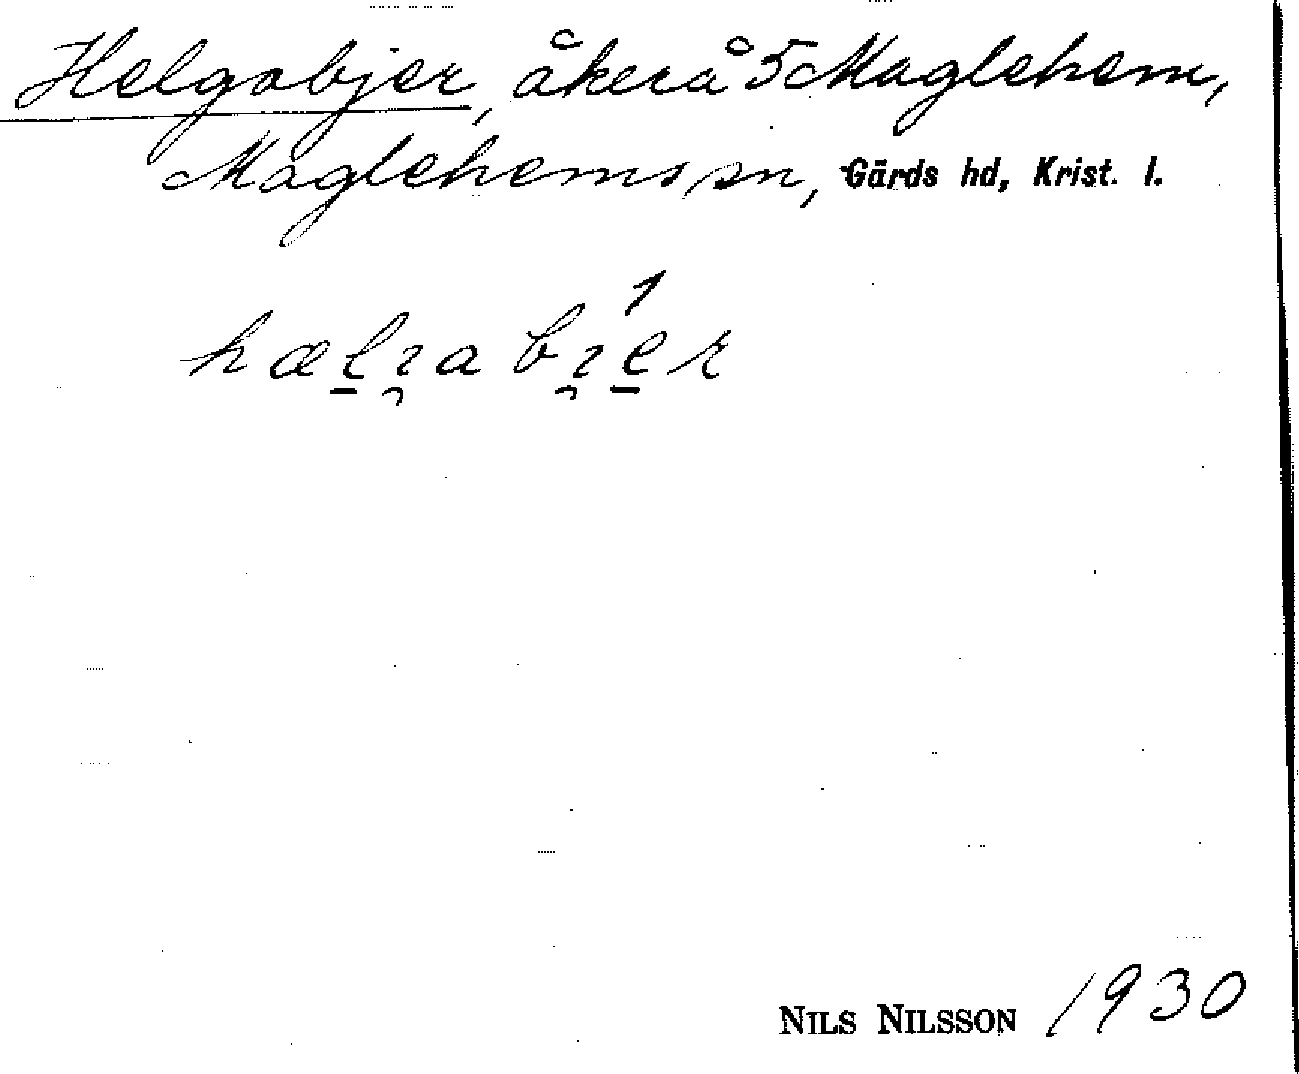 Helgabjer, åker å 5 Maglehem,
Maglehems sn, Gärds hd, Krist. l.
NILS NILSSON 1930